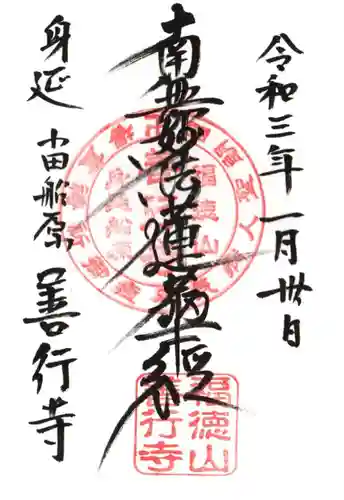 令和三年一月卅日
南無妙法蓮華経
身延
小田船原
善行寺
福徳山
善行寺